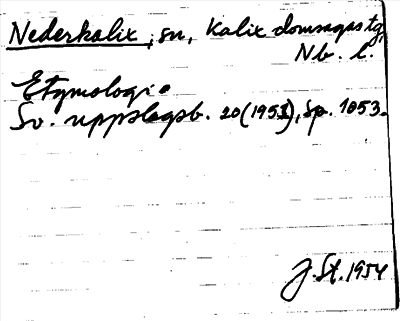 Nederkalix, sn, Kalix domsagas tg,
Nb. l.
Etymologi.
Sv. uppslagsb. 20 (1951), Sp. 1053.
J. St. 1954